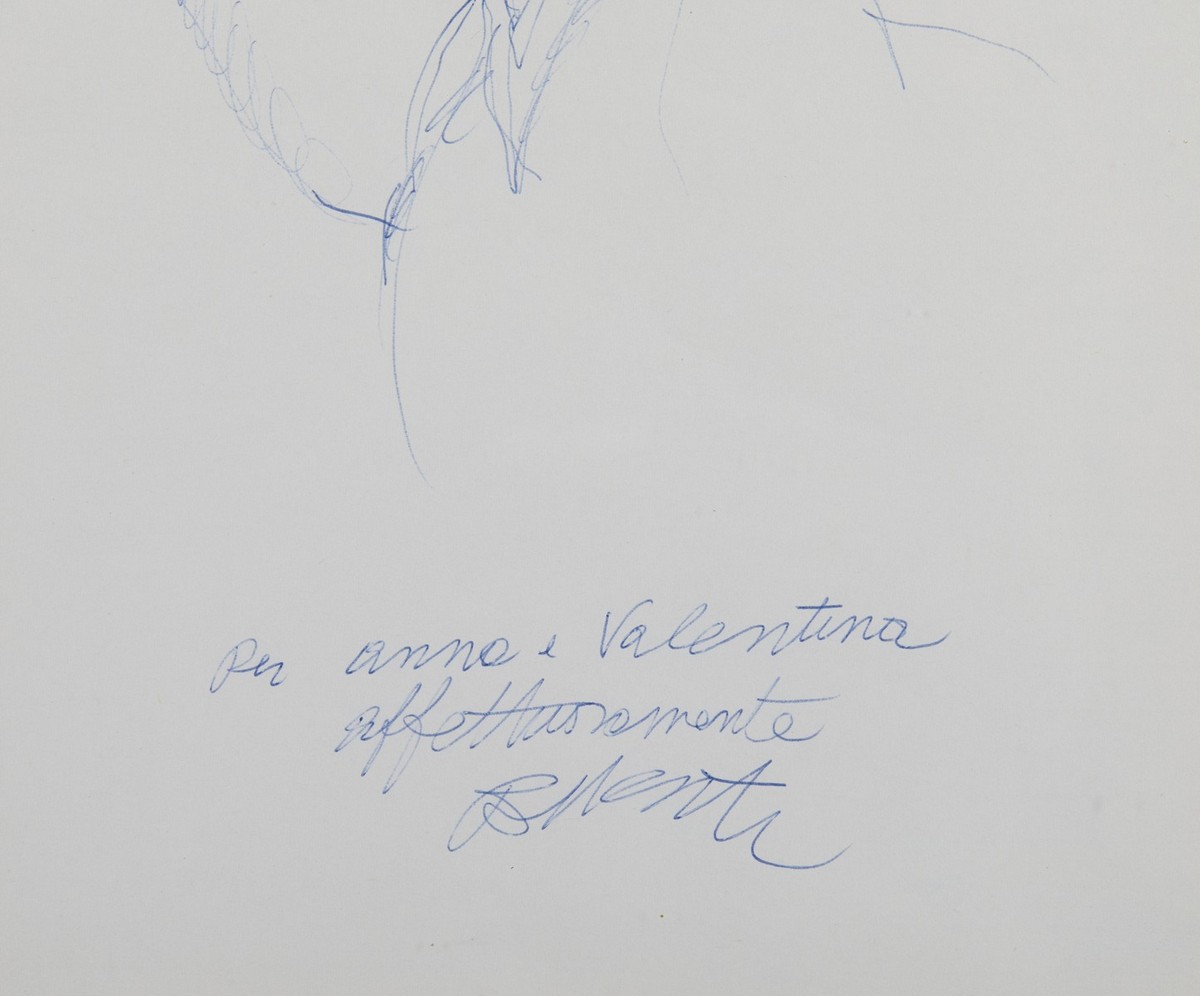 Per anna e Valentina
affettuosamente